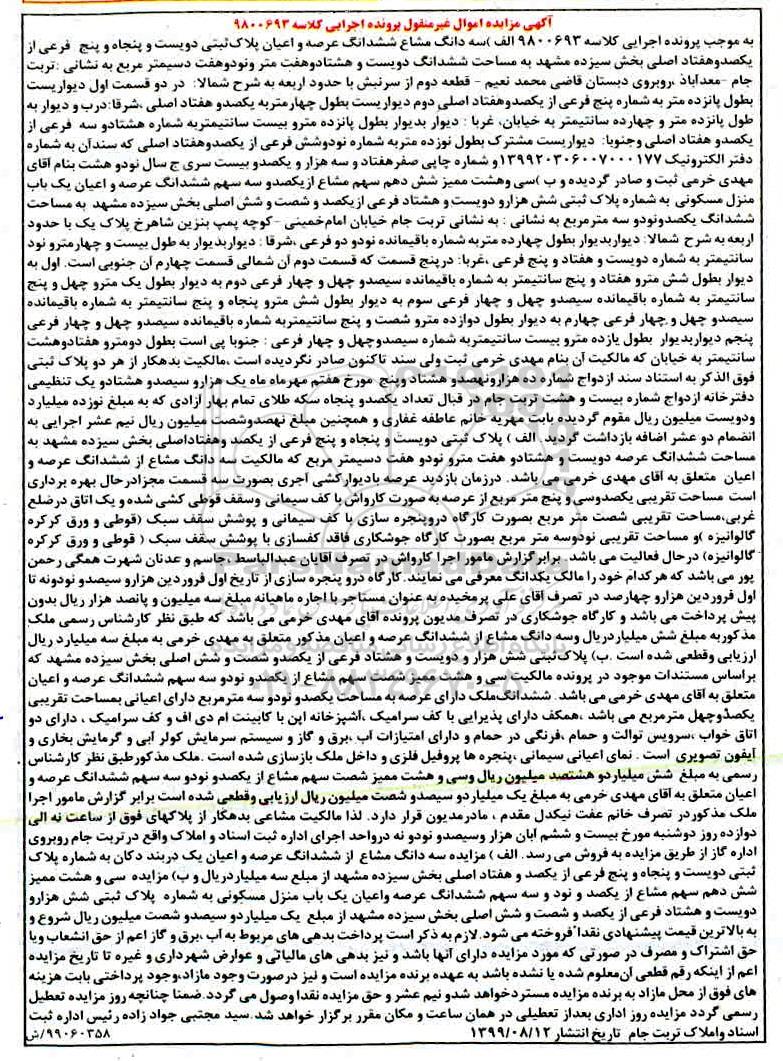 آگهی مزایده اموال غیرمنقول پرونده اجرایی کلاسه ۹۸۰۰۶۹۳
به موجب پرونده اجرایی کلاسه ۹۸۰۰۶۹۳ الف )سه دانگ مشاع ششدانگ عرصه و اعیان پلاک‌ثبتی دویست و پنجاه و پنج فرعی از
یکصدوهفتاد اصلی بخش سیزده مشهد به مساحت ششدانگ دویست و هشتادوهفت متر ونودوهفت دسیمتر مربع به نشانی :تربت
جام -معدآباد ،روبروی دبستان قاضی محمد نعیم - قطعه دوم از سرنبش با حدود اربعه به شرح شمالا: در دو قسمت اول دیواریست
بطول پانزده متر به شماره پنج فرعی از یکصدوهفتاد اصلی دوم دیواریست بطول چهارمتربه یکصدو هفتاد اصلی ،شرقا:درب و دیوار به
طول پانزده متر و چهارده سانتیمتر به خیابان، غربا : دیوار بدیوار بطول پانزده مترو بیست سانتیمتربه شماره هشتادو سه فرعی از
یکصدو هفتاد اصلی وجنوبا: دیواریست مشترک بطول نوزده متربه شماره نودوشش فرعی از یکصدوهفتاد اصلی که سندآن به شماره
دفتر الکترونیک ۱۳۹۹۲۰۳۰۶۰۰۷۰۰۰۱۷۷و شماره چاپی صفرهفتاد و سه هزار و یکصدو بیست سری ج سال نودو هشت بنام آقای
مهدی خرمی ثبت و صادر گردیده و ب )سی وهشت ممیز شش دهم سهم مشاع ازیکصدو سه سهم ششدانگ عرصه و اعیان یک باب
منزل مسکونی به شماره پلاک ثبتی شش هزارو دویست و هشتاد فرعی ازیکصد و شصت و شش اصلی بخش سیزده مشهد به مساحت
ششدانگ یکصدونودو سه مترمربع به نشانی : به نشانی تربت جام خیابان امام‌خمینی -کوچه پمپ بنزین شاهرخ پلاک یک با حدود
اربعه به شرح شمالا: دیواربدیوار بطول چهارده متربه شماره باقیمانده نودو دو فرعی ،شرقا : دیواربدیوار به طول بیست و چهارمترو نود
سانتیمتر به شماره دویست و هفتاد و پنج فرعی ،غربا: درپنج قسمت که قسمت دوم آن شمالی قسمت چهارم آن جنوبی است. اول به
دیوار بطول شش مترو هفتاد و پنج سانتیمتر به شماره باقیمانده سیصدو چهل و چهار فرعی دوم به دیوار بطول یک مترو چهل و پنج
سانتیمتر به شماره باقیمانده سیصدو چهل و چهار فرعی سوم به دیوار بطول شش مترو پنجاه و پنج سانتیمتر به شماره باقیمانده
سیصدو چهل و چهار فرعی چهارم به دیوار بطول دوازده مترو شصت و پنج سانتیمتربه شماره باقیمانده سیصدو چهل و چهار فرعی
پنجم دیواربدیوار بطول یازده مترو بیست سانتیمتربه شماره سیصدوچهل و چهار فرعی : جنوبا پی است بطول دومترو هفتادوهشت
سانتیمتر به خیابان که مالکیت آن بنام مهدی خرمی ثبت ولی سند تاکنون صادر نگردیده است ،مالکیت بدهکار از هر دو پلاک ثبتی
فوق الذکر به استناد سند ازدواج شماره ده هزارونهصدو هشتاد وپنج مورخ هفتم مهرماه ماه یک هزارو سیصدو هشتادو یک تنظیمی
دفترخانه ازدواج شماره بیست و هشت تربت جام در قبال تعداد یکصدو پنجاه سکه طلای تمام بهار آزادی که به مبلغ نوزده میلیارد
ودویست میلیون ریال مقوم گردیده بابت مهریه خانم عاطفه غفاری و همچنین مبلغ نهصدوشصت میلیون ریال نیم عشر اجرایی به
انضمام دو عشر اضافه بازداشت گردید. الف ) پلاک ثبتی دویست و پنجاه و پنج فرعی از یکصد وهفتاداصلی بخش سیزده مشهد به
مساحت ششدانگ عرصه دویست و هشتادو هفت مترو نودو هفت دسیمتر مربع که مالکیت سه دانگ مشاع از ششدانگ عرصه و
اعیان متعلق به آقای مهدی خرمی می باشد. درزمان بازدید عرصه بادیوارکشی آجری بصورت سه قسمت مجزادرحال بهره برداری
است مساحت تقریبی یکصدوسی و پنج متر مربع از عرصه به صورت کارواش با کف سیمانی وسقف قوطی کشی شده و یک اتاق درضلع
غربی،مساحت تقریبی شصت متر مربع بصورت کارگاه دروپنجره سازی با کف سیمانی و پوشش سقف سبک (قوطی و ورق کرکره
گالوانیزه )و مساحت تقریبی نودوسه متر مربع بصورت کارگاه جوشکاری فاقد کفسازی با پوشش سقف سبک ( قوطی و ورق کرکره
گالوانیزه) درحال فعالیت می باشد. برابر گزارش مامور اجرا کارواش در تصرف آقایان عبدالباسط ،جاسم و عدنان شهرت همگی رحمن
پور می باشد که هرکدام خود را مالک یکدانگ معرفی می نمایند. کارگاه درو پنجره سازی از تاریخ اول فروردین هزارو سیصدو نودونه تا
اول فروردین هزارو چهارصد در تصرف آقای علی پرمخیده به عنوان مستاجر با اجاره ماهیانه مبلغ سه میلیون و پانصد هزار ریال بدون
پیش پرداخت می باشد و کارگاه جوشکاری در تصرف مدیون پرونده آقای مهدی خرمی می باشد که طبق نظر کارشناس رسمی ملک
مذکوربه مبلغ شش میلیاردریال وسه دانگ مشاع از ششدانگ عرصه و اعیان مذکور متعلق به مهدی خرمی به مبلغ سه میلیارد ریال
ارزیابی وقطعی شده است .ب) پلاک‌ثبتی شش هزار و دویست و هشتاد فرعی از یکصدو شصت و شش اصلی بخش سیزده مشهد که
براساس مستندات موجود در پرونده مالکیت سی و هشت ممیز شصت سهم مشاع از یکصدو نودو سه سهم ششدانگ عرصه و اعیان
متعلق به آقای مهدی خرمی می باشد. ششدانگ‌ملک دارای عرصه به مساحت یکصدو نودو سه مترمربع دارای اعیانی بمساحت تقریبی
یکصدوچهل مترمربع می باشد ،همکف دارای پذیرایی با کف سرامیک ،آشپزخانه اپن با کابینت ام دی اف و کف سرامیک ، دارای دو
اتاق خواب ،سرویس توالت و حمام ،فرنگی در حمام و دارای امتیازات آب ،برق و گاز و سیستم سرمایش کولر آبی و گرمایش بخاری و
آیفون تصویری است . نمای اعیانی سیمانی ،پنجره ها پروفیل فلزی و داخل ملک بازسازی شده است .ملک مذکورطبق نظر کارشناس
رسمی به مبلغ شش میلیاردو هشتصد میلیون ریال وسی و هشت ممیز شصت سهم مشاع از یکصدو نودو سه سهم ششدانگ عرصه و
اعیان متعلق به آقای مهدی خرمی به مبلغ یک میلیاردو سیصدو شصت میلیون ریال ارزیابی وقطعی شده است برابر گزارش مامور اجرا
ملک مذکوردر تصرف خانم عفت نیکدل مقدم ، مادرمدیون قرار دارد. لذا مالکیت مشاعی بدهکار از پلاکهای فوق از ساعت نه الی
دوازده روز دوشنبه مورخ بیست و ششم آبان هزار وسیصدو نودو نه درواحد اجرای اداره ثبت اسناد و املاک واقع درتربت جام روبروی
اداره گاز از طریق مزایده به فروش می رسد. الف ) مزایده سه دانگ مشاع از ششدانگ عرصه و اعیان یک دربند دکان به شماره پلاک
ثبتی دویست و پنجاه و پنج فرعی از یکصد و هفتاد اصلی بخش سیزده مشهد از مبلغ سه میلیاردریال و ب) مزایده سی و هشت ممیز
شش دهم سهم مشاع از یکصد و نود و سه سهم ششدانگ عرصه واعیان یک باب منزل مسکونی به شماره پلاک ثبتی شش هزارو
دویست و هشتاد فرعی از یکصد و شصت و شش اصلی بخش سیزده مشهد از مبلغ یک میلیاردو سیصدو شصت میلیون ریال شروع و
به بالاترین قیمت پیشنهادی نقدا فروخته می شود.لازم به ذکر است پرداخت بدهی های مربوط به آب ،برق و گاز اعم از حق انشعاب ویا
حق اشتراک و مصرف در صورتی که مورد مزایده دارای آنها باشد و نیز بدهی های مالیاتی و عوارض شهرداری و غیره تا تاریخ مزایده
اعم از اینکه رقم قطعی آن‌معلوم شده یا نشده باشد به عهده برنده مزایده است و نیز درصورت وجود مازاد،وجوه پرداختی بابت هزینه
های فوق از محل مازاد به برنده مزایده مسترد خواهد شدو نیم عشر و حق مزایده نقدا وصول می گردد.ضمنا چنانچه روز مزایده تعطیل
رسمی گردد مزایده روز اداری بعداز تعطیلی در همان ساعت و مکان مقرر برگزار خواهد شد.سید مجتبی جواد زاده رئیس اداره ثبت
اسناد واملاک تربت جام تاریخ انتشار ۱۳۹۹/۰۸/۱۲ ۹۹۰۶۰۳۵۸/ش